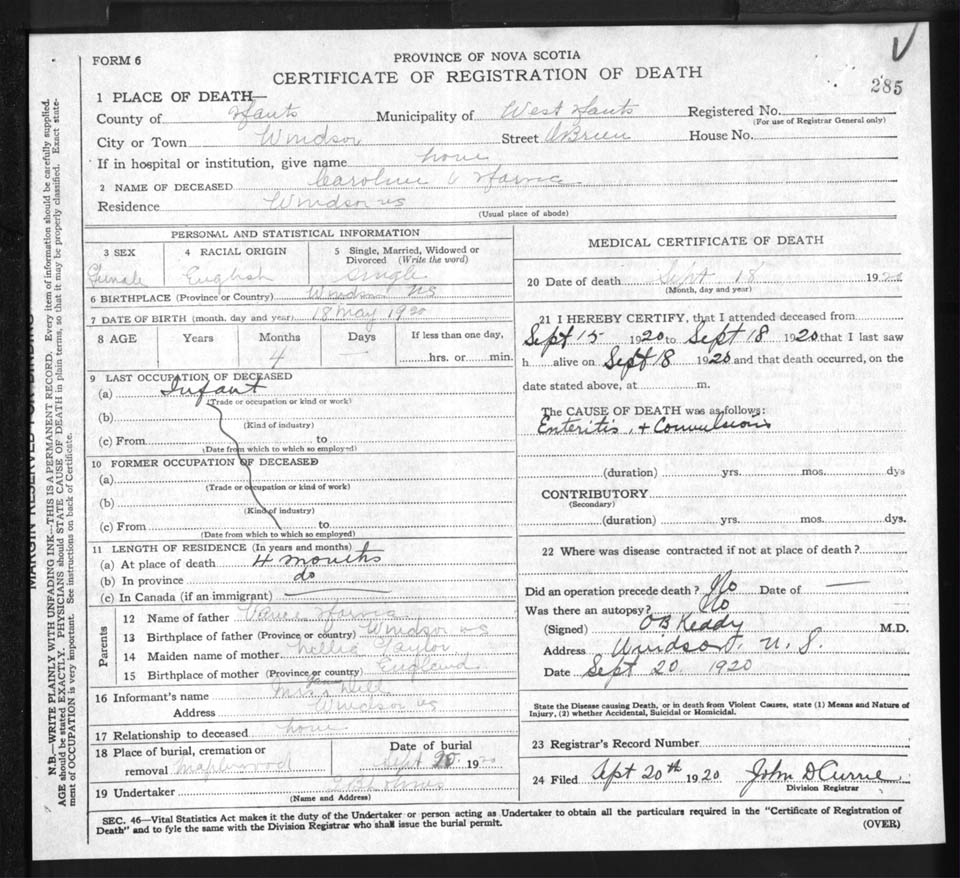 FORM 6
PROVINCE OF NOVA SCOTIA
CERTIFICATE OF REGISTRATION OF DEATH
285
1 PLACE OF DEATH—
County of Hants Municipality of West Hants Registered No.
(For use of Registrar General only)
City or Town Windsor Street O'Brien House No.
If in hospital or institution, give name home
2 NAME OF DECEASED Caroline V
Residence Windsor NS
(Usual place of abode)
PERSONAL AND STATISTICAL INFORMATION
3 SEX 4 RACIAL ORIGIN 5 Single, Married, Widowed or Divorced (Write the word)
Female English Single
6 BIRTHPLACE (Province or Country) Windsor NS
7 DATE OF BIRTH (month, day and year) 18 May 1920
8 AGE Years Months Days If less than one day,
4 — hrs. or min.
9 LAST OCCUPATION OF DECEASED
(a) Infant
(Trade or occupation or kind or work)
(b)
(Kind of industry)
(c) From to
(Date from which to which so employed)
10 FORMER OCCUPATION OF DECEASED
(a)
(Trade or occupation or kind of work)
(b)
(Kind of industry)
(c) From to
(Date from which to which so employed)
11 LENGTH OF RESIDENCE (In years and months)
(a) At place of death 4 months
(b) In province do
(c) In Canada (if an immigrant)
Parents
12 Name of father
13 Birthplace of father (Province or country) Windsor NS
14 Maiden name of mother Nellie Taylor
15 Birthplace of mother (Province or country) England
16 Informant's name Mrs Dill
Address Windsor NS
17 Relationship to deceased none
18 Place of burial, cremation or removal Maplewood
Date of burial Sept 20 1920
19 Undertaker
(Name and Address)
MEDICAL CERTIFICATE OF DEATH
20 Date of death Sept 18 1920
(Month, day and year)
21 I HEREBY CERTIFY, that I attended deceased from
Sept 15 1920 to Sept 18 1920 that I last saw
h alive on Sept 18 1920 and that death occurred, on the
date stated above, at m.
The CAUSE OF DEATH was as follows:
Enteritis, + Convulsions
(duration) yrs. mos. dys
CONTRIBUTORY
(Secondary)
(duration) yrs. mos. dys.
22 Where was disease contracted if not at place of death?
Did an operation precede death? No Date of —
Was there an autopsy? No
(Signed) O B Keddy M.D.
Address Windsor. N. S.
Date Sept 20 1920
State the Disease causing Death, or in death from Violent Causes, state (1) Means and Nature of
Injury, (2) whether Accidental, Suicidal or Homicidal.
23 Registrar's Record Number
24 Filed Sept 20th 1920 John D Currie
Division Registrar
SEC. 46—Vital Statistics Act makes it the duty of the Undertaker or person acting as Undertaker to obtain all the particulars required in the "Certificate of Registration of
Death" and to fyle the same with the Division Registrar who shall issue the burial permit. (OVER)
MARGIN RESERVED FOR BINDING
N.B.—WRITE PLAINLY WITH UNFADING INK—THIS IS A PERMANENT RECORD. Every item of information should be carefully supplied.
AGE should be stated EXACTLY. PHYSICIANS should STATE CAUSE OF DEATH in plain terms, so that it may be properly classified. Exact state-
ment of OCCUPATION is very important. See instructions on back of Certificate.